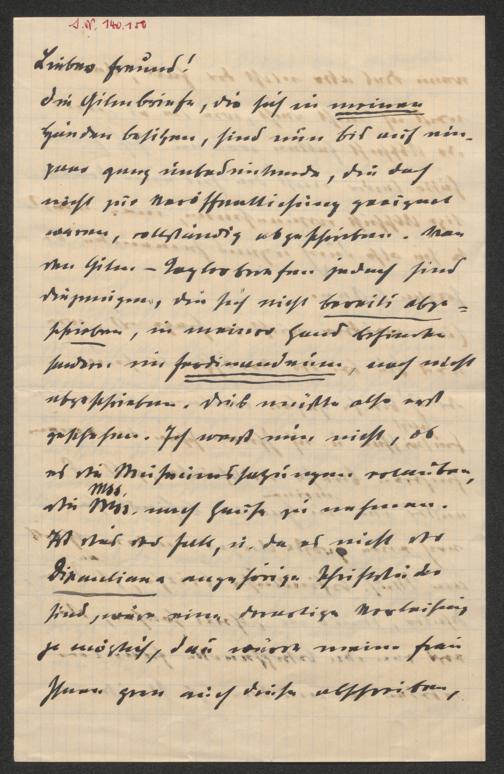 I.N. 140.150
Lieber Freund!
Die Gilmbriefe, die sich in meinen
Händen befinden, sind nun bis auf ein-
paar ganz unbedeutende, die doch
nicht zur Veröffentlichung geeignet
waren, vollständig abgeschrieben. Von
den Gilm- jedoch sind
diejenigen, die sich nicht bereits abge-
schrieben, in meiner Hand befinden
sondern im Ferdinandeum, noch nicht
abgeschrieben. Dies müßte also erst
geschehen. Ich weiß nun nicht, ob
es die Museumssatzungen erlauben,
die Mss. Mss. nach Hause zu nehmen.
Ist das der Fall, u. da es nicht der
Dipauliana angehörige Schriftstücke
sind, wäre eine derartige Verleihung
ja möglich, dann würde meine Frau
Ihnen gern auch diese abschreiben,